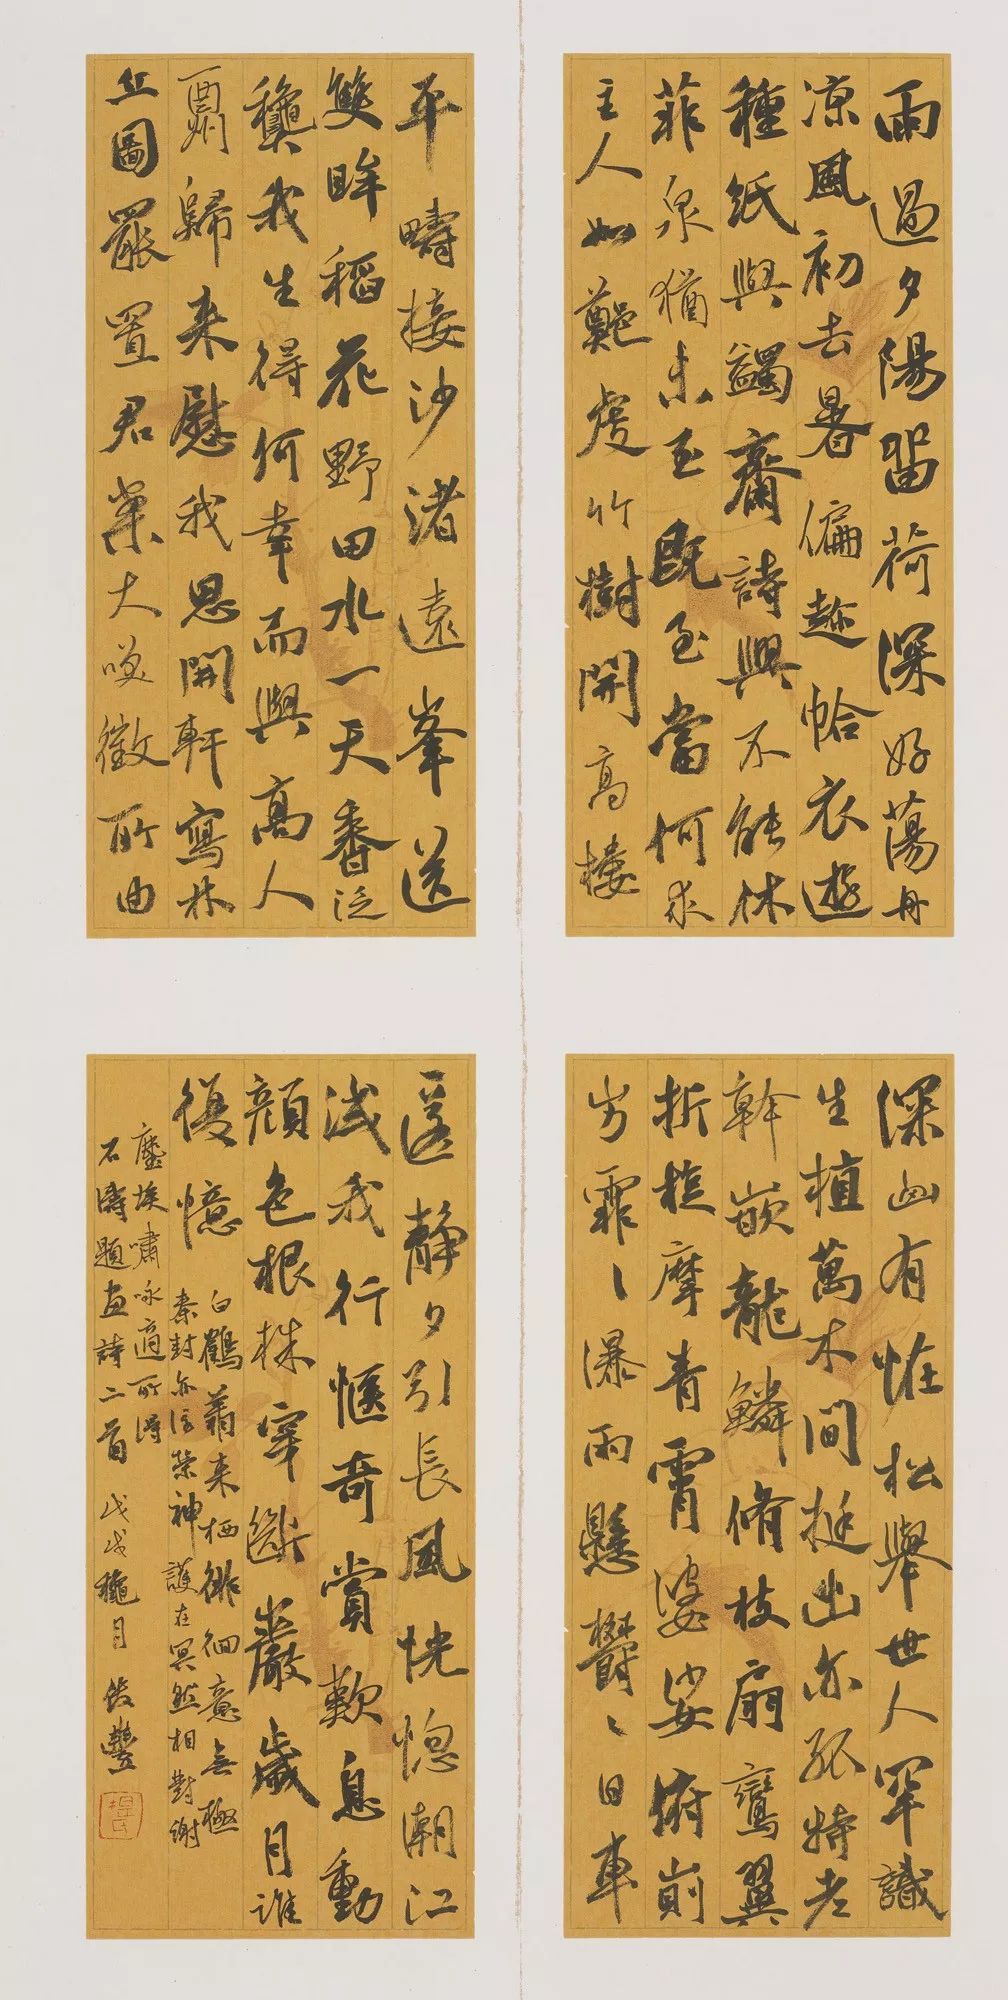 雨過夕陽留荷深好蕩舟
涼風初去暑偏趁帢衣遊
種紙與蠲齋詩興不能休
菲泉猶未至既至當何求
主人如鄭虔竹樹開高樓
平疇接沙渚遠峯送
雙眸稻花野田水一天香泛
穨我生得何幸而與高人
歸来慰我思開軒寫林
丘圖罷置君案大嘆徵所由
深山有怪松舉世人罕識
生植萬木間挺出亦孤特老
幹嵌龍鱗脩枝扇鸞翼
折旋摩青霄婆娑俯前
岁霏〻瀑雨懸欝〻日車
匿静夕引長風恍惚潮江
淺我行愜奇賞歎息動
顔色根株穿斷巖歲月誰
復憶 白鶴蓊来栖徘徊意無極
秦封亦信榮神護在冥然相對謝
塵埃嘯咏適所得
石濤題畫詩二首 戊戌穐月 俊豐